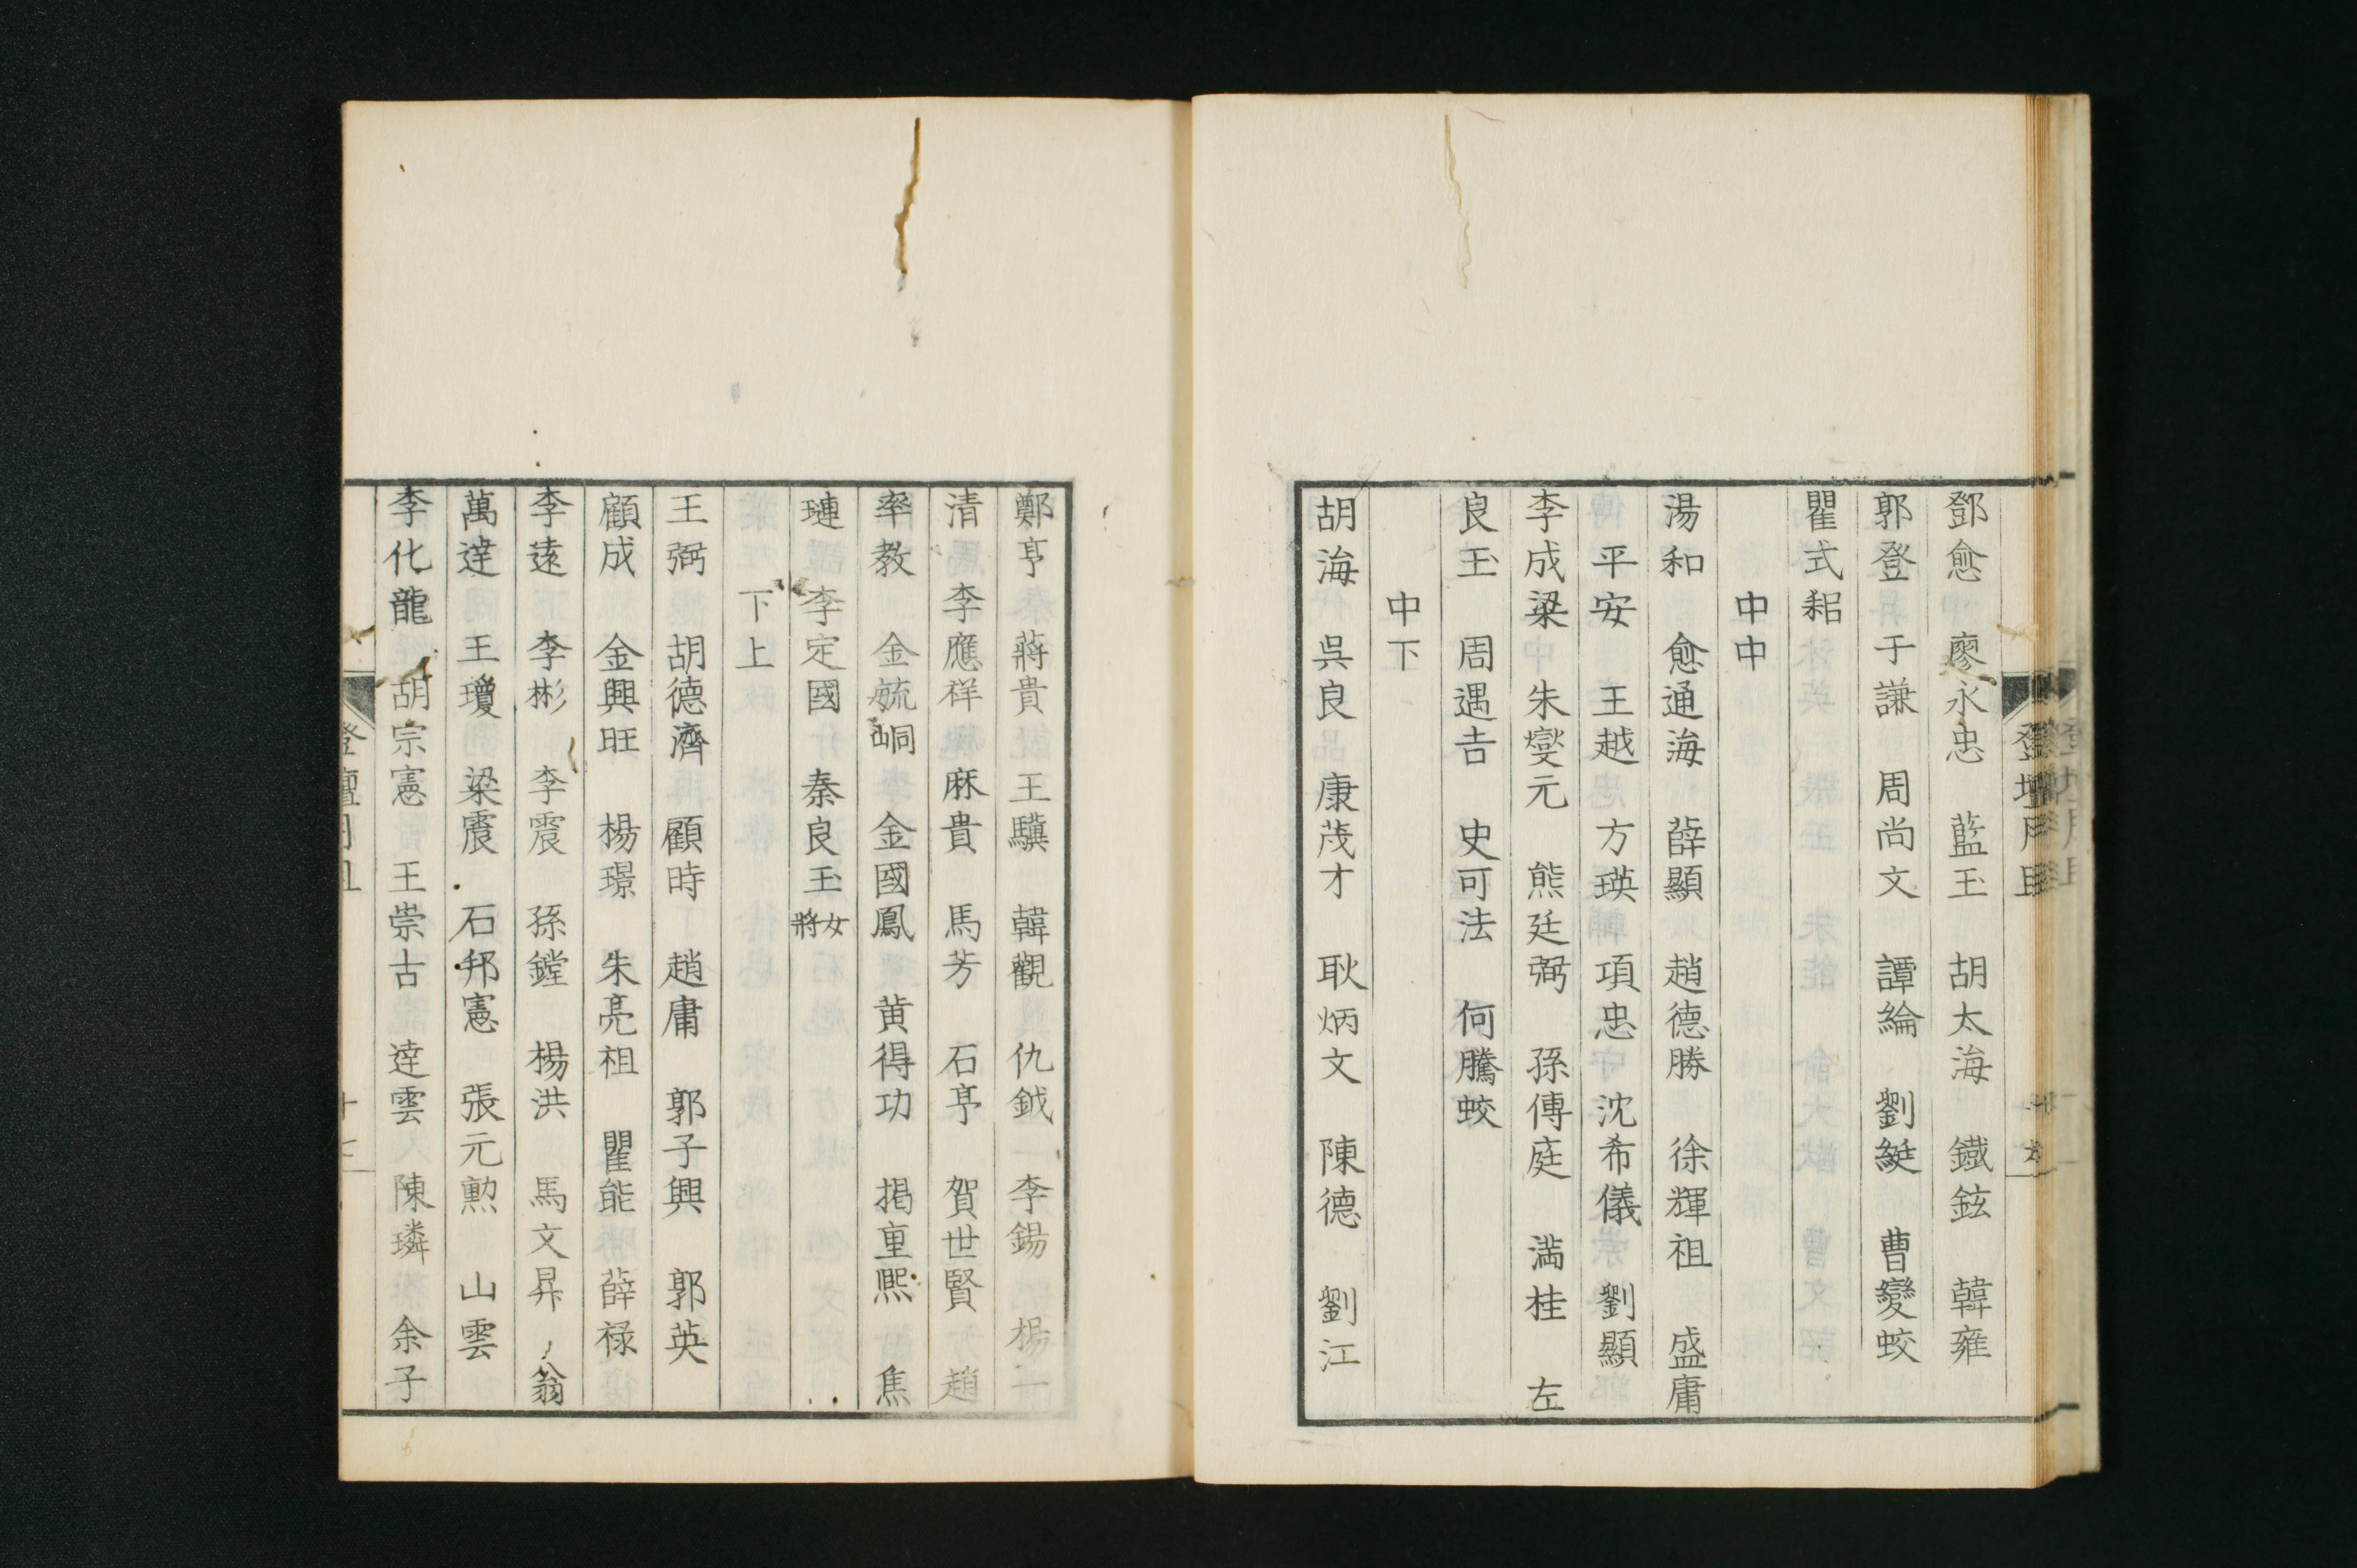 鄧愈　廖永忠　藍玉　胡大海　鐵鉉　韓雍
郭登　于謙　周尚文　譚綸　劉綎　曹變蛟
瞿式耜
中中
湯和　愈通海　薛顯　趙德勝　徐輝祖　盛庸
平安　王越　方瑛　項忠　沈希儀　劉顯
李成梁　朱燮元　熊廷弼　孫傳庭　滿桂　左
良玉　周遇吉　史可法　何騰蛟
中下
胡海　吳良　康茂才　耿炳文　陳德　劉江
鄭亨　蔣貴　王驥　韓觀　仇鉞　李錫　楊一
清　李應祥　麻貴　馬芳　石亨　賀世賢　趙
率教　金毓峒　金國鳳　黃得功　揭重熙　焦
璉　李定國　秦良玉女將
下上
王弼　胡德濟　顧時　趙庸　郭子興　郭英
顧成　金興旺　楊璟　朱亮祖　瞿能　薛祿
李遠　李彬　李震　孫鏜　楊洪　馬文昇　翁
萬達　王瓊　梁震　石邦憲　張元勲　山雲
李化龍　胡宗憲　王崇古　達雲　陳璘　余子